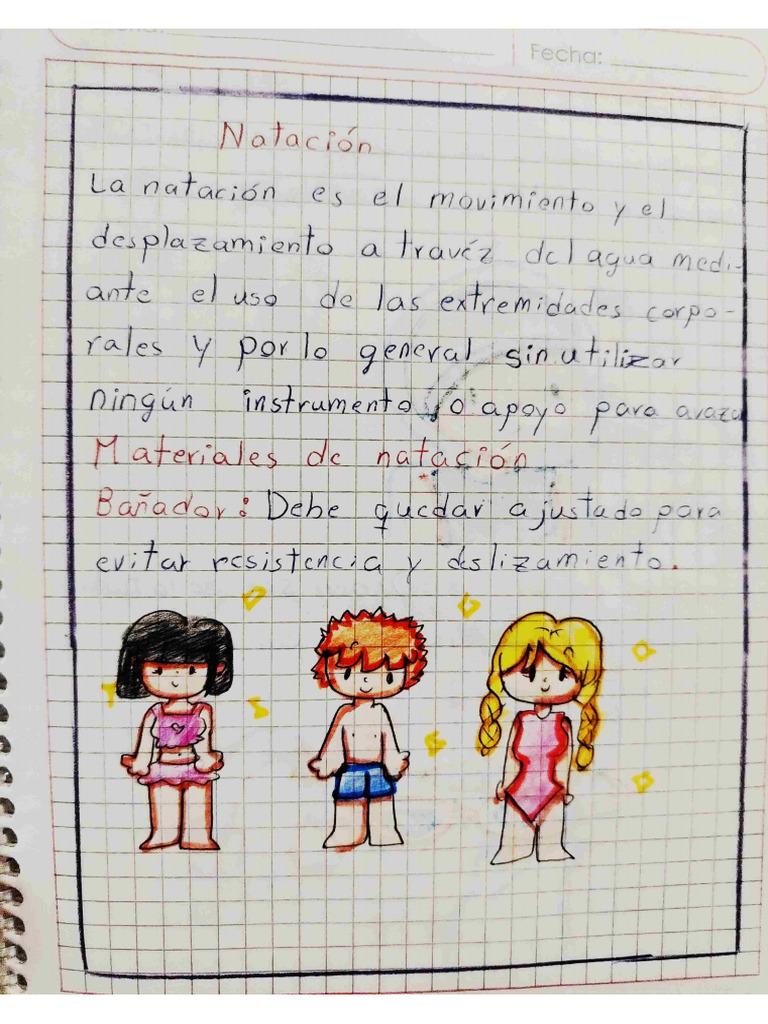 Fecha:
Natación
La natación es el movimiento y el
desplazamiento a travéz del agua medi-
ante el uso de las extremidades corpo-
rales y por lo general sin utilizar
ningún instrumento o apoyo para avaza
Materiales de natación
Bañador: Debe quedar ajustado para
evitar resistencia y deslizamiento.